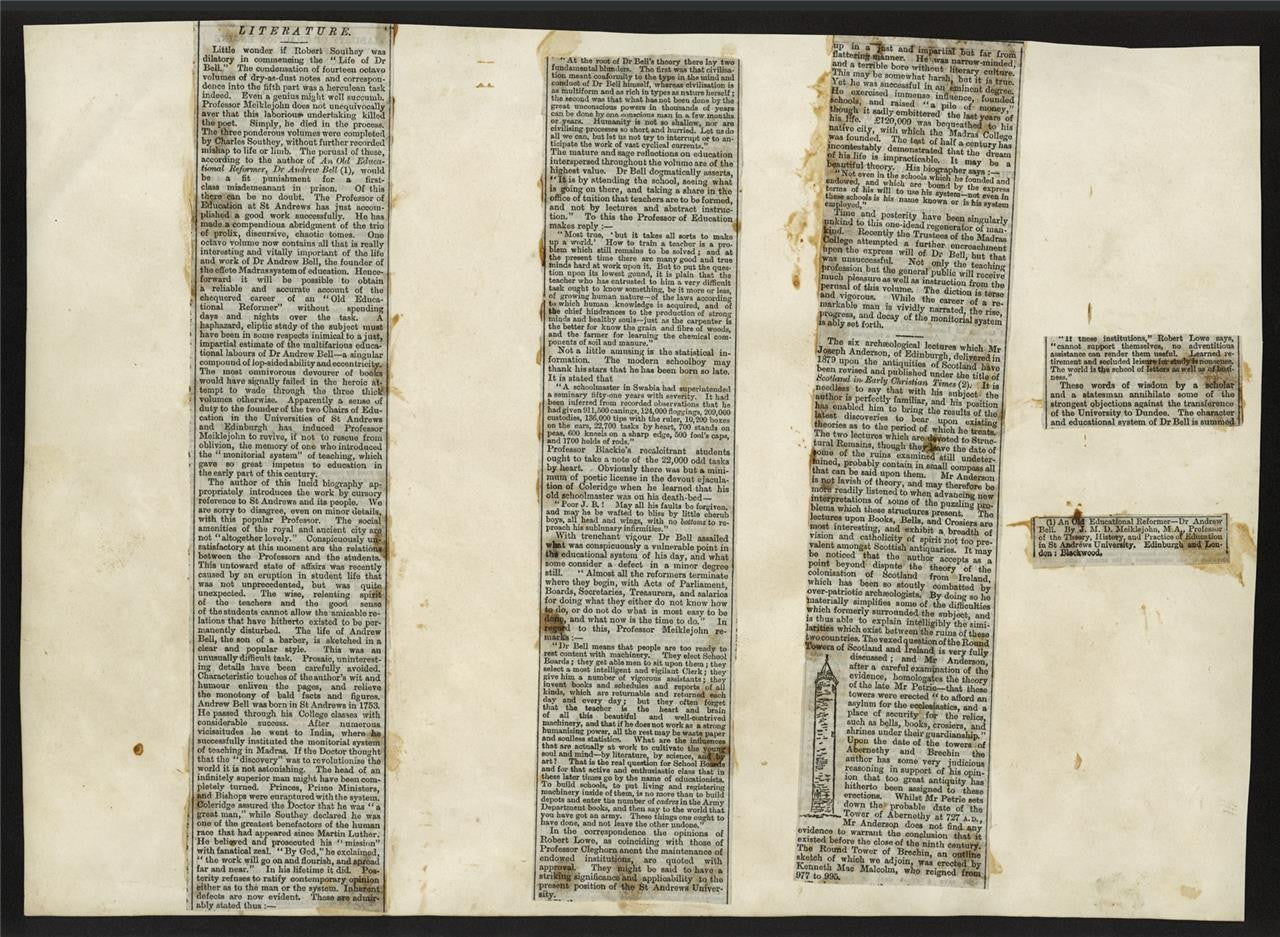 LITERATURE.
Little wonder if Robert Southey was
dilatory in commencing the "Life of Dr
Bell." The condensation of fourteen octavo
volumes of dry-as-dust notes and correspon-
dence into the fifth part was a herculean task
indeed. Even a genius might well succumb.
Professor Meiklejohn does not unequivocally
aver that this laborious undertaking killed
the poet. Simply, he died in the process.
The three ponderous volumes were completed
by Charles Southey, without further recorded
mishap to life or limb. The perusal of these,
according to the author of An Old Educa-
tional Reformer, Dr Andrew Bell (1), would
be a fit punishment for a first-
class misdemeanant in prison. Of this
there can be no doubt. The Professor of
Education at St Andrews has just accom-
plished a good work successfully. He has
made a compendious abridgment of the trio
of prolix, discursive, chaotic tomes. One
octavo volume now contains all that is really
interesting and vitally important of the life
and work of Dr Andrew Bell, the founder of
the effete Madras system of education. Hence-
forward it will be possible to obtain
a reliable and accurate account of the
chequered career of an "Old Educa-
tional Reformer" without spending
days and nights over the task. A
haphazard, eliptic study of the subject must
have been in some respects inimical to a just,
impartial estimate of the multifarious educa-
tional labours of Dr Andrew Bell—a singular
compound of lop-sided ability and eccentricity.
The most omnivorous devourer of books
would have signally failed in the heroic at-
tempt to wade through the three thick
volumes otherwise. Apparently a sense of
duty to the founder of the two Chairs of Edu-
cation in the Universities of St Andrews
and Edinburgh has induced Professor
Meiklejohn to revive, if not to rescue from
oblivion, the memory of one who introduced
the "monitorial system" of teaching, which
gave so great impetus to education in
the early part of this century.
The author of this lucid biography ap-
propriately introduces the work by cursory
reference to St Andrews and its people. We
are sorry to disagree, even on minor details,
with this popular Professor. The social
amenities of the royal and ancient city are
not "altogether lovely." Conspicuously un-
satisfactory at this moment are the relations
between the Professors and the students.
This untoward state of affairs was recently
caused by an eruption in student life that
was not unprecedented, but was quite
unexpected. The wise, relenting spirit
of the teachers and the good sense
of the students cannot allow the amicable re-
lations that have hitherto existed to be per-
manently disturbed. The life of Andrew
Bell, the son of a barber, is sketched in a
clear and popular style. This was an
unusually difficult task. Prosaic, uninterest-
ing details have been carefully avoided.
Characteristic touches of the author's wit and
humour enliven the pages, and relieve
the monotony of bald facts and figures.
Andrew Bell was born in St Andrews in 1753.
He passed through his College classes with
considerable success. After numerous
vicissitudes he went to India, where he
succesfully instituted the monitorial system
of teaching in Madras. If the Doctor thought
that the "discovery" was to revolutionise the
world it is not astonishing. The head of an
infinitely superior man might have been com-
pletely turned. Princes, Prime Ministers,
and Bishops were enraptured with the system.
Coleridge assured the Doctor that he was "a
great man," while Southey declared he was
one of the greatest benefactors of the human
race that had appeared since Martin Luther.
He believed and prosecuted his "mission"
with fanatical zeal. "By God," he exclaimed,
"the work will go on and flourish, and spread
far and near." In his lifetime it did. Pos-
terity refuses to ratify contemporary opinion
either as to the man or the system. Inherent
defects are now evident. These are admir-
ably stated thus:—
"At the root of Dr Bell's theory there lay two
fundamental blunders. The first was that civilisa-
tion meant conformity to the type in the mind and
conduct of Dr Bell himself, whereas civilisation is
as multiform and as rich in types as nature herself;
the second was that what has not been done by the
great unconscious powers in thousands of years
can be done by one conscious man in a few months
or years. Humanity is not so shallow, nor are
civilising processes so short and hurried. Let us do
all we can, but let us not try to interrupt or to an-
ticipate the work of vast cyclical currents."
The mature and sage reflections on education
interspersed throughout the volume are of the
highest value. Dr Bell dogmatically asserts,
"It is by attending the school, seeing what
is going on there, and taking a share in the
office of tuition that teachers are to be formed,
and not by lectures and abstract instruc-
tion." To this the Professor of Education
makes reply:—
"Most true, 'but it takes all sorts to make
up a world.' How to train a teacher is a pro-
blem which still remains to be solved; and at
the present time there are many good and true
minds hard at work upon it. But to put the ques-
tion upon its lowest gound, it is plain that the
teacher who has entrusted to him a very difficult
task ought to know something, be it more or less,
of growing human nature—of the laws according
to which human knowledge is acquired, and of
the chief hindrances to the production of strong
minds and healthy souls—just as the carpenter is
the better for know the grain and fibre of woods,
and the farmer for learning the chemical com-
ponents of soil and manure."
Not a little amusing is the statistical in-
formation. The modern schoolboy may
thank his stars that he has been born so late.
It is stated that
"A schoolmaster in Swabia had superintended
a seminary fifty-one years with severity. It had
been inferred from recorded observations that he
had given 911,500 canings, 124,000 floggings, 209,000
custodies, 136,000 tips with the ruler, 10,200 boxes
on the ears, 22,700 tasks by heart, 700 stands on
peas, 600 kneels on a sharp edge, 500 fool's caps,
and 1700 holds of rods."
Professor Blackie's recalcitrant students
ought to take a note of the 22,000 odd tasks
by heart. Obviously there was but a mini-
mum of poetic license in the devout ejacula-
tion of Coleridge when he learned that his
old schoolmaster was on his death-bed—
"Poor J. B.! May all his faults be forgiven,
and may he be wafted to bliss by little cherub
boys, all head and wings, with no bottoms to re-
proach his sublunary infirmities."
With trenchant vigour Dr Bell assailed
what was conspicuously a vulnerable point in
the educational system of his day, and what
some consider a defect in a minor degree
still. "Almost all the reformers terminate
where they begin, with Acts of Parliament,
Boards, Secretaries, Treasurers, and salaries
for doing what they either do not know how
to do, or do not do what is most easy to be
done, and what now is the time to do." In
regard to this, Professor Meiklejohn re-
marks:—
"Dr Bell means that people are too ready to
rest content with machinery. They elect School
Boards; they get able men to sit upon them; they
select a most intelligent and vigilant Clerk; they
give him a number of vigorous assistants; they
invent books and schedules and reports of all
kinds, which are returnable and returned each
day and every day; but they often forget
that the teacher is the heart and brain
of all this beautiful and well-contrived
machinery, and that if he does not work as a strong
humanising power, all the rest may be waste paper
and soulless statistics. What are the influences
that are actually at work to cultivate the young
soul and mind—by literature, by science, and by
art? That is the real question for School Boards
and for that active and enthusiastic class that in
these later times go by the name of educationists.
To build schools, to put living and registering
machinery inside of them, is no more than to build
depots and enter the number of cadres in the Army
Department books, and then say to the world that
you have got an army. These things one ought to
have done, and not leave the other undone."
In the correspondence the opinions of
Robert Lowe, as coinciding with those of
Professor Cleghorn anent the maintenance of
endowed institutions, are quoted with
approval. They might be said to have a
striking significance and applicability to the
present position of the St Andrews Univer-
sity.
"If these institutions," Robert Lowe says,
"cannot support themselves, no adventitious
assistance can render them useful. Learned re-
tirement and secluded leisure for study is nonsence.
The world is the school of letters as well as of busi-
ness."
These words of wisdom by a scholar
and a statesman annihilate some of the
strongest objections against the transference
of the University to Dundee. The character
and educational system of Dr Bell is summed
up in a just and impartial but far from
flattering manner. He was narrow-minded
and a terrible bore without literary culture.
This may be somewhat harsh, but it is true.
Yet he was successful in an eminent degree.
He exercised immense influence, founded
schools, and raised "a pile of money,"
though it sadly embittered the last years of
his life. £120,000 was bequeathed to his
native city, with which the Madras College
was founded. The test of half a century has
incontestably demonstrated that the dream
of his life is impracticable. It may be a
beautiful theory. His biographer says:—
"Not even in the schools which he founded and
endowed, and which are bound by the express
terms of his will to use his system—not even in
these schools is his name known or is his system
employed."
Time and posterity have been singularly
unkind to this one-idead regenerator of man-
kind. Recently the Trustees of the Madras
College attempted a further encroachment
upon the express will of Dr Bell, but that
was unsuccessful. Not only the teaching
profession but the general public will receive
much pleasure as well as instruction from the
perusal of this volume. The diction is terse
and vigorous. While the career of a re-
markable man is vividly narrated, the rise,
progress, and decay of the monitorial system
is ably set forth.
The six archæological lectures which Mr
Joseph Anderson, of Edinburgh, delivered in
1879 upon the antiquities of Scotland have
been revised and published under the title of
Scotland in Early Christian Times (2). It is
needless to say that with his subject the
author is perfectly familiar, and his position
has enabled him to bring the results of the
latest discoveries to bear upon existing
theories as to the period of which he treats.
The two lectures which are devoted to Struc-
tural Remains, though they leave the date of
some of the ruins examined still undeter-
mined, probably contain in small compass all
that can be said upon them. Mr Anderson
is not lavish of theory, and may therefore be
more readily listened to when advancing new
interpretations of some of the puzzling pro-
blems which these structures present. The
lectures upon Books, Bells, and Crosiers are
most interesting, and exhibit a breadth of
vision and catholicity of spirit not too pre-
valent amongst Scottish antiquaries. It may
be noticed that the author accepts as a
point beyond dispute the theory of the
colonisation of Scotland from Ireland,
which has been so stoutly combatted by
over-patriotic archæologists. By doing so he
materially simplifies some of the difficulties
which formerly surrounded the subject, and
is thus able to explain intelligibly the simi-
larities which exist between the ruins of these
two countries. The vexed question of the Round
Towers of Scotland and Ireland is very fully
discussed; and Mr Anderson,
after a careful examination of the
evidence, homologates the theory
of the late Mr Petrie—that these
towers were erected "to afford an
asylum for the ecclesiastics, and a
place of security for the relics,
such as bells, books, crosiers, and
shrines under their guardianship."
Upon the date of the towers of
Abernethy and Brechin the
author has some very judicious
reasoning in support of his opin-
ion that too great antiquity has
hitherto been assigned to these
erections. Whilst Mr Petrie sets
down the probable date of the
Tower of Abernethy at 727 A.D.,
Mr Anderson does not find any
evidence to warrant the conclusion that it
existed before the close of the ninth century.
The Round Tower of Brechin, an outline
sketch of which we adjoin, was erected by
Kenneth Mac Malcolm, who reigned from
977 to 995.
(1) An Old Educational Reformer—Dr Andrew
Bell. By J. M. D. Meiklejohn, M.A., Professor
of the Theory, History, and Practice of Education
in St Andrews University. Edinburgh and Lon-
don: Blackwood.